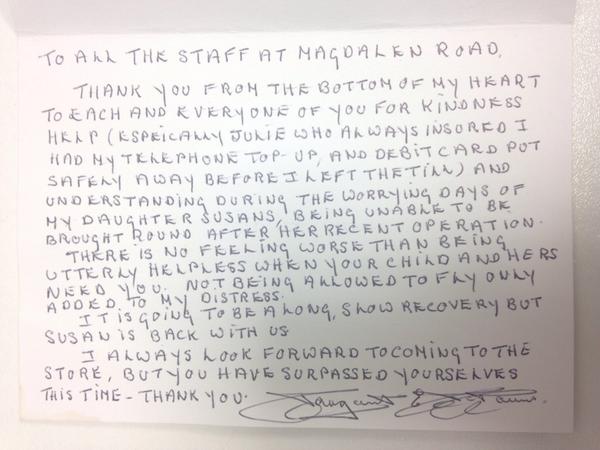 TO ALL THE STAFF AT MAGDALEN ROAD.
THANK YOU FROM THE BOTTOM OF MY HEART
TO EACH AND EVERYONE OF YOU FOR KINDNESS
HELP (ESPEICALLY JULIE WHO ALWAYS INSORED I
HAD MY TELEPHONE TOP-UP, AND DEBIT CARD PUT
SAFELY AWAY BEFORE I LEFT THE TILL) AND
UNDERSTANDING DURING THE WORRYING DAYS OF
MY DAUGHTER SUSANS, BEING UNABLE TO BE
BROUGHT ROUND AFTER HER RECENT OPERATION.
THERE IS NO FEELING WORSE THAN BEING
UTTERLY HELPLESS WHEN YOUR CHILD AND HERS
NEED YOU. NOT BEING ALLOWED TO FLY ONLY
ADDED TO MY DISTRESS.
IT IS GOING TO BE A LONG, SLOW RECOVERY BUT
SUSAN IS BACK WITH US
I ALWAYS LOOK FORWARD TO COMING TO THE
STORE, BUT YOU HAVE SURPASSED YOURSELVES
THIS TIME - THANK YOU.